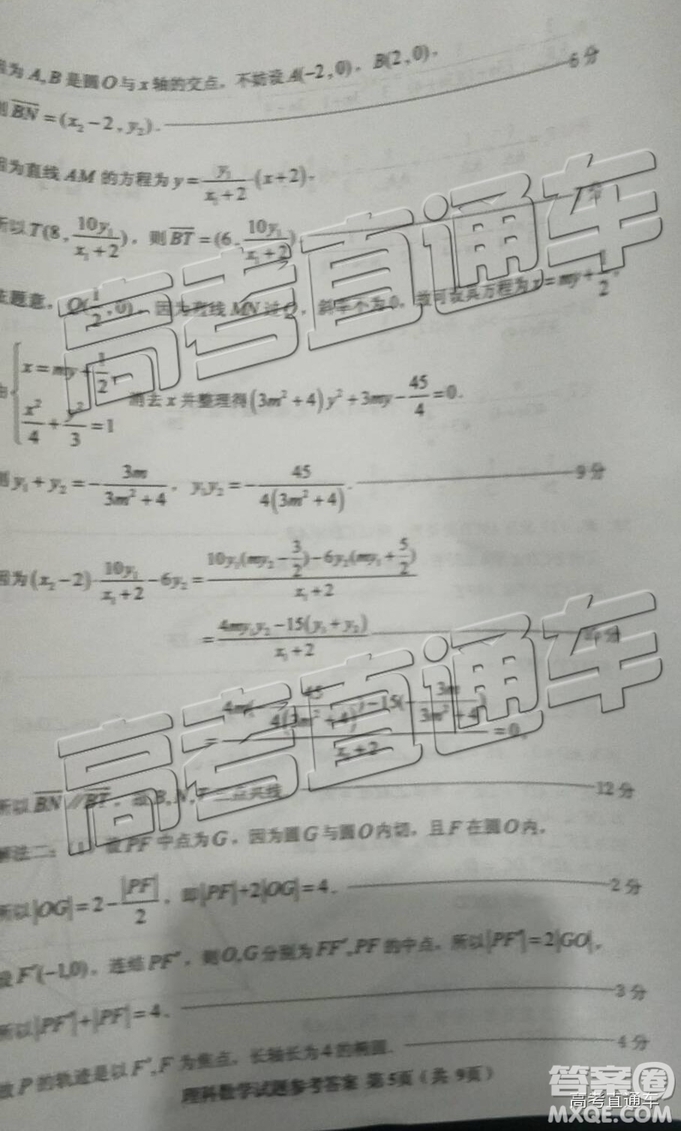 因为 A,B 是圆 O 与 x 轴的交点，不妨设 A(-2,0)，B(2,0)， 6分
则 \overrightarrow{BN}=(x₂-2, y₂).
因为直线 AM 的方程为 y=\frac{y₁}{x₁+2}(x+2)，
所以 T(8, \frac{10y₁}{x₁+2})，则 \overrightarrow{BT}=(6, \frac{10y₁}{x₁+2})
主题意，Q(\frac{1}{2},0)，因为直线 MN 过 Q，斜率不为 0，故可设其方程为 x=my+\frac{1}{2}，
由 \begin{cases} x=my+\frac{1}{2}, \\ \frac{x²}{4}+\frac{y²}{3}=1 \end{cases} 消去 x 并整理得 (3m²+4)y²+3my-\frac{45}{4}=0.
则 y₁+y₂=-\frac{3m}{3m²+4}，y₁y₂=-\frac{45}{4(3m²+4)}. 9分
因为 (x₂-2)·\frac{10y₁}{x₁+2}-6y₂=\frac{10y₁(my₂-\frac{3}{2})-6y₂(my₁+\frac{5}{2})}{x₁+2}
=\frac{4my₁y₂-15(y₁+y₂)}{x₁+2}
=\frac{4m(-\frac{45}{4(3m²+4)})-15(-\frac{3m}{3m²+4})}{x₁+2}=0,
所以 \overrightarrow{BN}∥\overrightarrow{BT}，故 B,N,T 三点共线 12分
解法二：(1) 设 PF 中点为 G，因为圆 G 与圆 O 内切，且 F 在圆 O 内，
所以 |OG|=2-\frac{|PF|}{2}，即 |PF|+2|OG|=4. 2分
设 F'(-1,0)，连结 PF'，则 O,G 分别为 FF',PF 的中点，所以 |PF'|=2|GO|，
所以 |PF'|+|PF|=4. 3分
故 P 的轨迹是以 F',F 为焦点，长轴长为 4 的椭圆. 4分
理科数学试题参考答案 第5页（共 9页）
高考直通车
高考直通车
答案圈
高考直通车
MXQE.COM